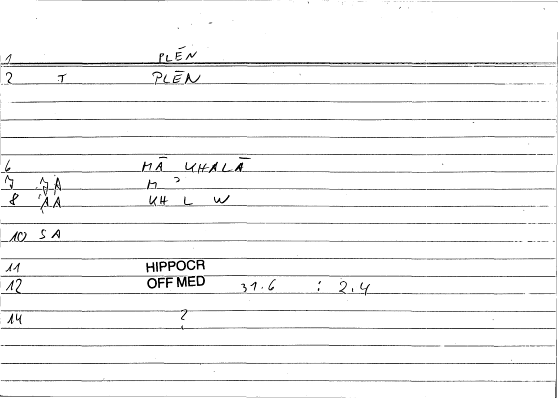 1 PLĒN
2 T PLĒN
6 MĀ KHALĀ
7 JA M ?
8 ĀA KH L W
10 SA
11 HIPPOCR
12 OFF MED 31.6 : 2.4
14 ?